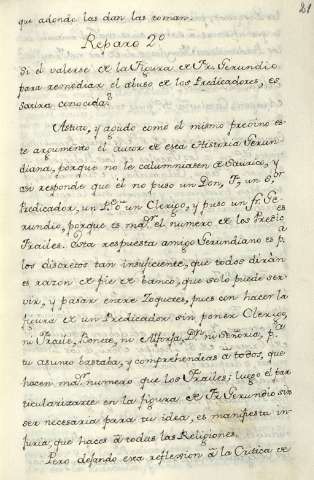 21
que adonde las dan las toman.
Reparo 2º
Si el valerse de la Figura de Fr. Gerundio
para remediar el abuso de los Predicadores, es
satira conocida?
Astuto, y agudo como el mismo previno es
te argumento el autor de esta Historia Gerun
diana, porque no le calumniasen de Satirico, y
asi responde que él no puso un Don,
Predicador, un un Clerigo, y puso un fr. Ge
rundio, porque es mayr. el numero de los Predic
Frailes. Esta respuesta amigo Gerundiano es pa
los discretos tan insuficiente, que todos dirán
es razon de pie de banco, que solo puede ser
vir, y pasar entre Zoquetes, pues con hacer la
figura de un Predicador sin poner Clerigo,
ni Fraile, Bonete, ni Alforja, Dn. ni Señoria, pa
tu asunto bastaba, y comprehendias á todos, que
hacen mayr. numero que los Frailes; luego el par
ticularizarte en la figura de Fr. Gerundio sin
ser necesaria para tu idea, es manifiesta in
juria, que haces á todas las Religiones.
Pero dejando esta reflexion á la Critica de